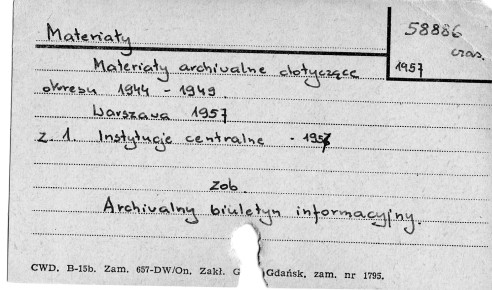 Materiały
58886
czas.
1957
Materiały archiwalne dotyczące
okresu 1944 - 1949.
Warszawa 1957
z. 1. Instytucje centralne - 1957
zob.
Archiwalny biuletyn informacyjny.
CWD. B-15b. Zam. 657-DW/On. Zakł. G Gdańsk, zam. nr 1795.